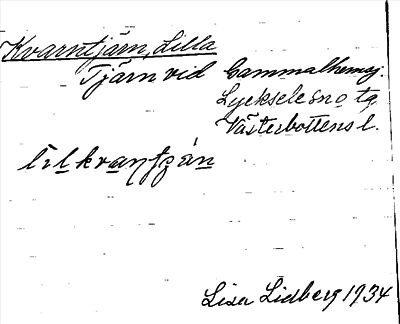 Kvarntjärn, Lilla
Tjärn vid Gammalhemsj.
Lycksele sno tg
Västerbottens l.
Lisa Lidberg 1934